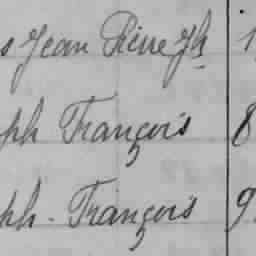 s Jean Pierre Jh 1
ph François 8
ph. François 9